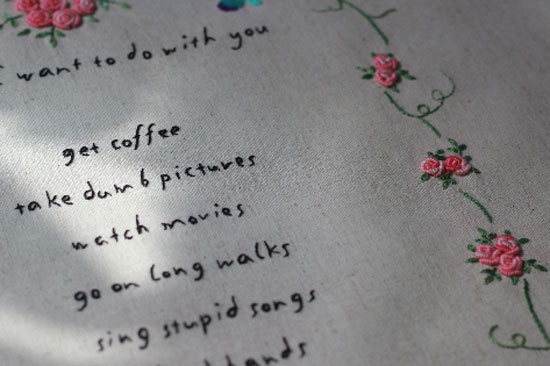 want to do with you
get coffee
take dumb pictures
watch movies
go on long walks
sing stupid songs
hands